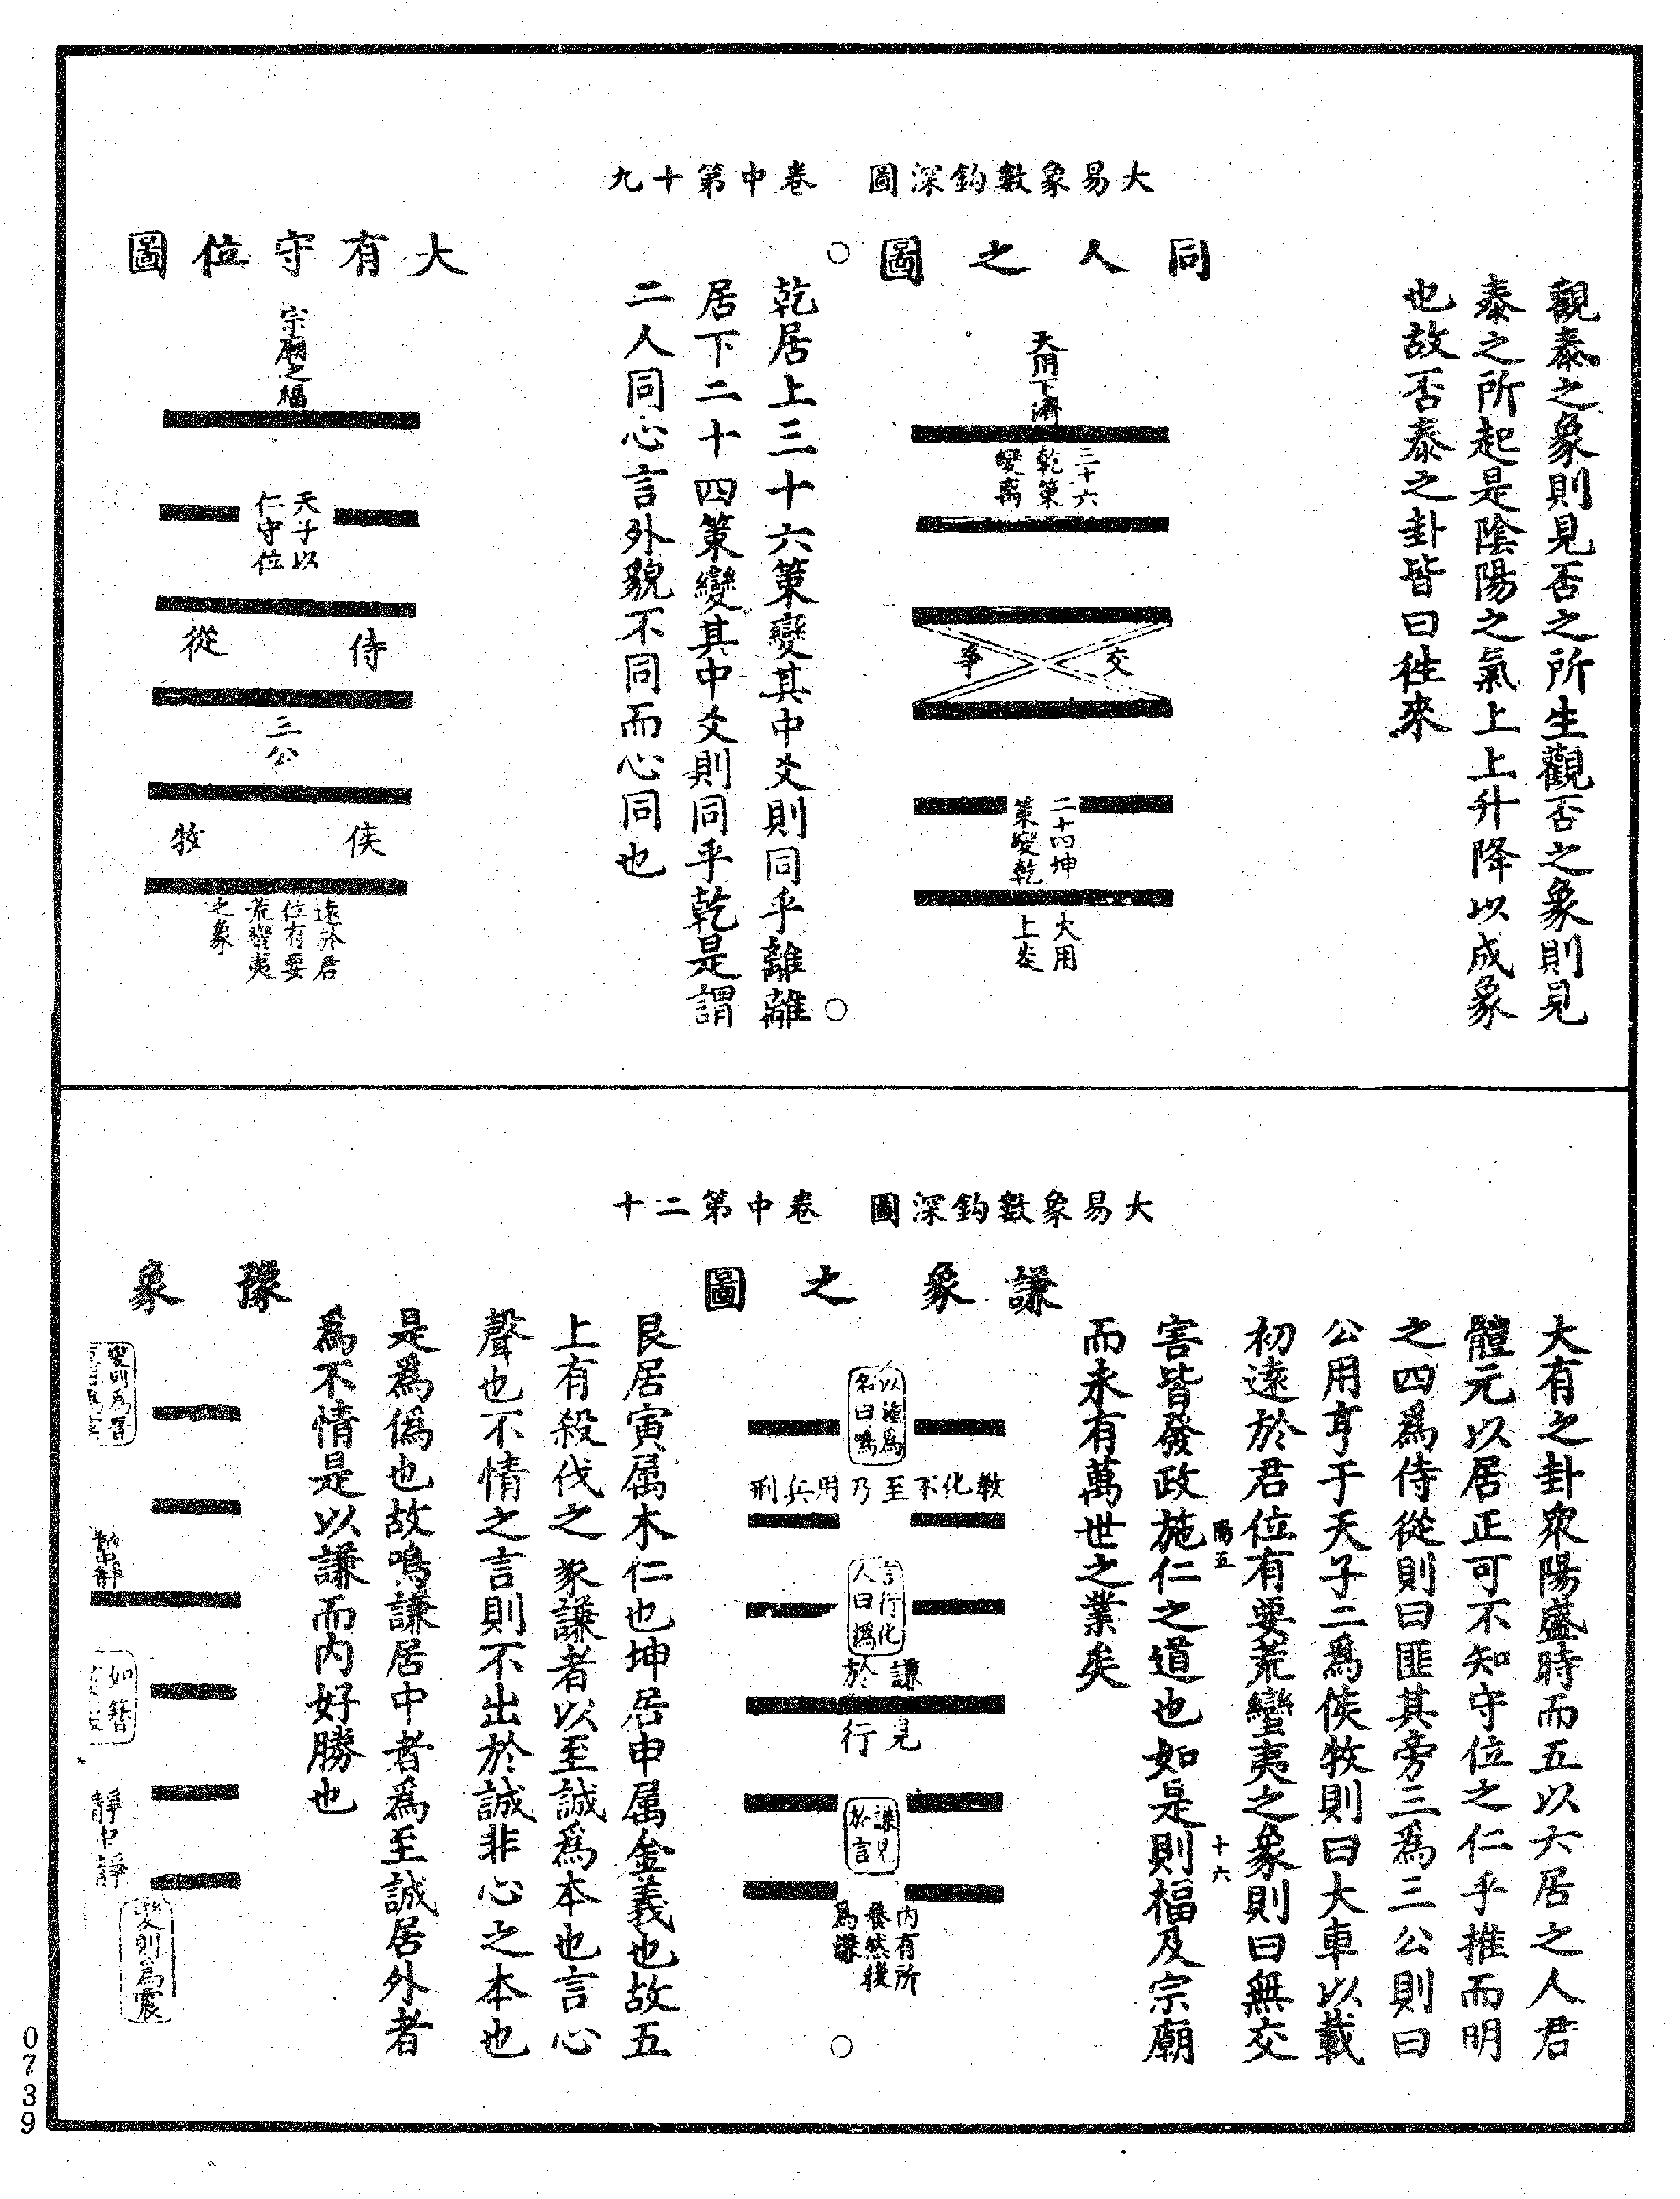 大易象數鈎深圖　卷中第十九
觀泰之象則見否之所生觀否之象則見
泰之所起是陰陽之氣上上升降以成象
也故否泰之卦皆曰徃來
同人之圖
天用下濟
三十六
乾策
變离
交
爭
二十四坤
策變乾
火用
上炎
乾居上三十六策變其中爻則同乎離離
居下二十四策變其中爻則同乎乾是謂
二人同心言外貌不同而心同也
大有守位圖
宗廟之福
天子以
仁守位
侍
從
三公
侯
牧
遠於君
位有要
荒蠻夷
之象
大易象數鈎深圖　卷中第二十
大有之卦衆陽盛時而五以六居之人君
體元以居正可不知守位之仁乎推而明
之四爲侍從則曰匪其旁三爲三公則曰
公用亨于天子二爲侯牧則曰大車以載
初遠於君位有要荒蠻夷之象則曰無交
陽五
十六
害皆發政施仁之道也如是則福及宗廟
而永有萬世之業矣
謙象之圖
名曰鳴
教化不至乃用兵刑
言行化
人曰撝
謙
於
見
行
謙見
於言
內有所
養然後
爲謙
艮居寅属木仁也坤居申属金義也故五
上有殺伐之象謙者以至誠爲本也言心
聲也不情之言則不出於誠非心之本也
是爲僞也故鳴謙居中者爲至誠居外者
爲不情是以謙而內好勝也
豫象
變則爲晉
動中靜
如簪
靜中靜
變則爲震
0739